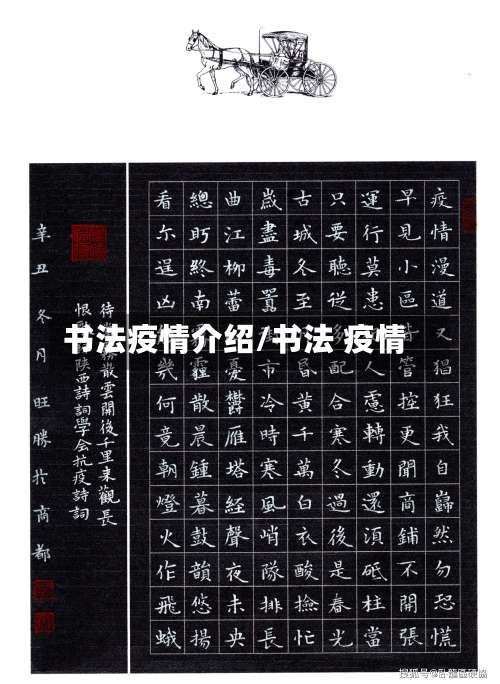 书法疫情介绍/书法 疫情
疫情漫道又猖狂我自巋然勿恐慌
早見小區皆管控更聞商鋪不開張
運行莫患人慮轉動還須砥柱當
只要聽從多配合寒冬過後是春光
古城冬至昏黃千萬白衣酸撿忙
歲盡毒囂市冷時寒風哨隊排長
曲江柳蕾憂鬱雁塔經聲夜未央
總盼終南霾散晨鍾暮鼓韻悠揚
看尔逞凶幾何竟朝燈火作飛蛾
待散雲開後千里来觀長
恨陝西詩詞學会抗疫詩詞
辛丑冬月旺勝於商都
搜狐号@卧龍區硬協